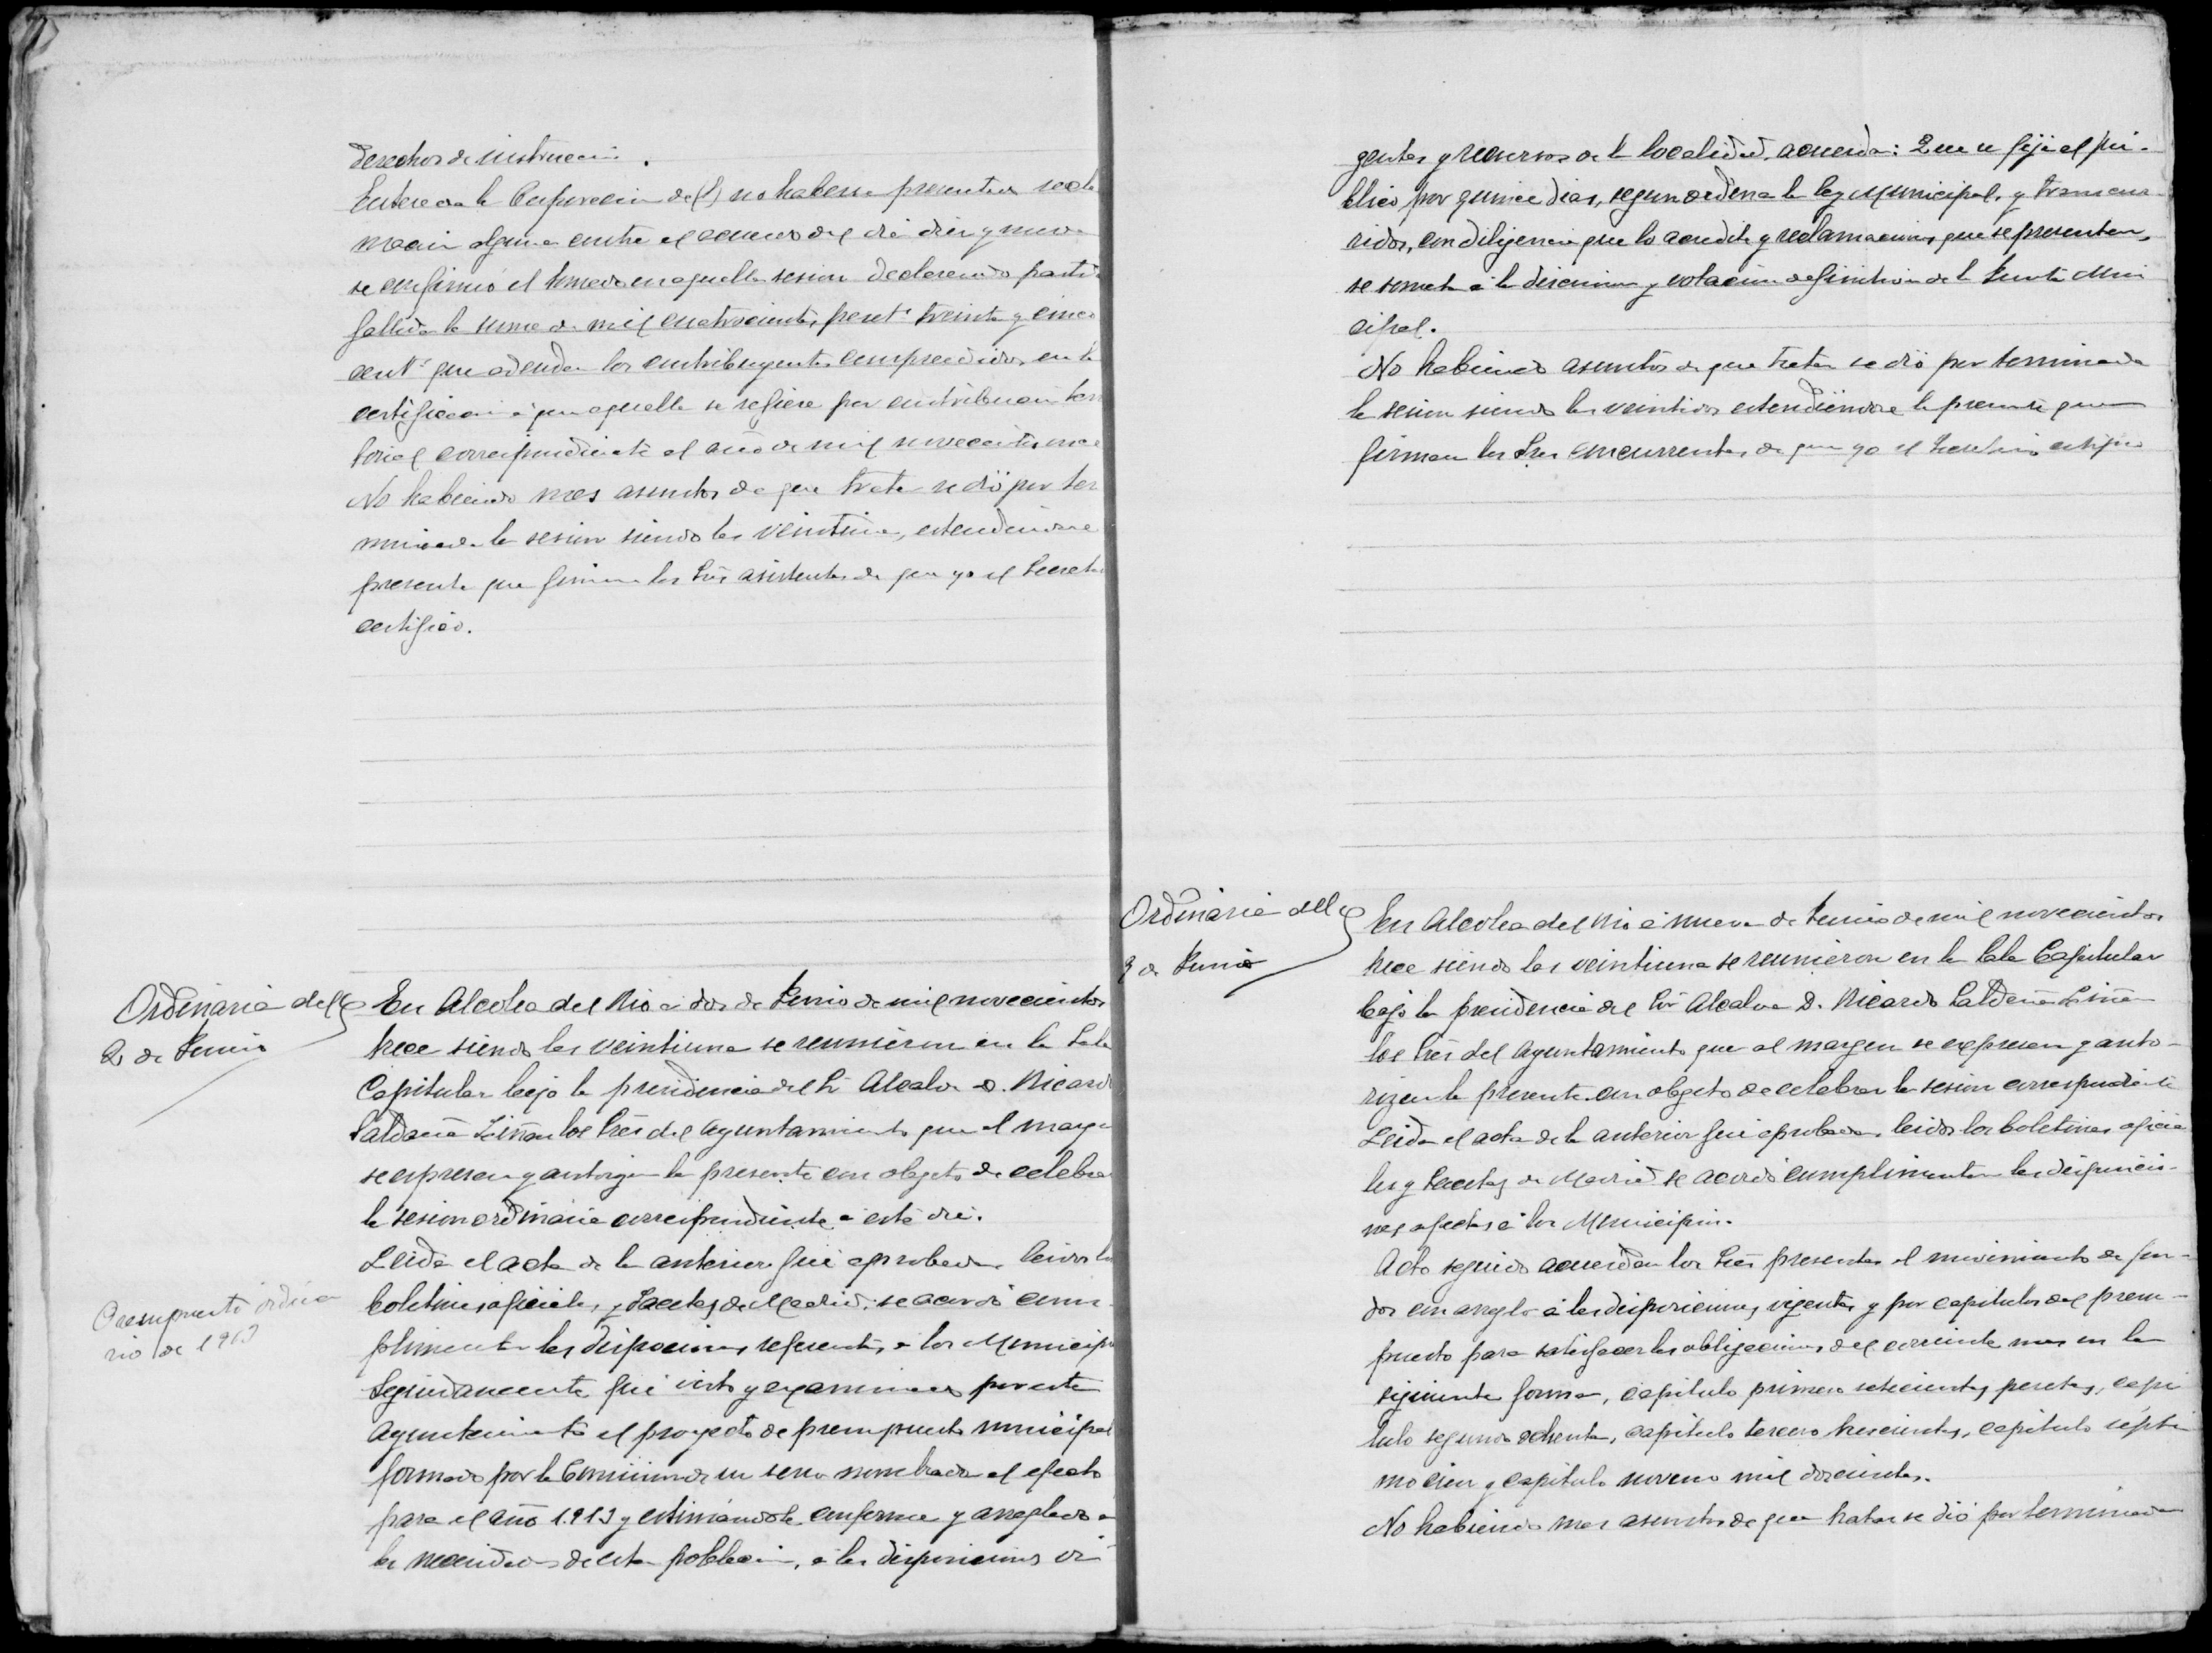 derechos de instruccion.
Enterada la Corporacion de (l) no haberse presentado recla
macion alguna contra el acuerdo del dia diez y nueve
se confirmó el tomado en aquella sesion declarando partida
fallida la suma de mil cuatrocientas peset.s treinta y cinco
cent.s que adeudan los contribuyentes comprendidos en la
certificacion á que aquella se refiere por contribucion terri
torial correspondiente al año de mil novecientos once
No habiendo mas asuntos de que tratar se dió por ter
minada la sesion siendo las veintiuna, estendiendose
presente que firman los Sres asistentes de que yo el Secreta
certifico.
Ordinaria del
2 de Junio
En Alcolea del Rio á dos de Junio de mil novecientos
trece siendo las veintiuna se reunieron en la Sala
Capitular bajo la presidencia del Sr Alcalde D. Ricardo
Saldaña Liñan los Sres del Ayuntamiento que al margen
se espresan y autorizan la presente con objeto de celebrar
la sesion ordinaria correspondiente a este dia.
Leida el acta de la anterior fué aprobada, leidos los
boletines oficiales y Gacetas de Madrid, se acordó cum-
plimentar las disposiciones referentes a los Municipios
Presupuesto ordina
rio de 1913
Seguidamente fué visto y examinado por este
Ayuntamiento el proyecto de presupuesto municipal
formado por la Comision de su seno nombrada al efecto
para el año 1.913 y estimándole conforme y arreglado a
las necesidades de esta poblacion, a las disposiciones vi
gentes y recursos de la localidad, acuerda: Que se fije al pú-
blico por quince dias, segun ordena la ley Municipal, y transcur
ridos, con diligencia que lo acredite y reclamaciones que se presenten,
se someta á la discusion y votacion definitiva de la Junta Muni
cipal.
No habiendo asuntos de que tratar se dió por terminada
la sesion siendo las veintidos estendiéndose la presente que
firman los Sres concurrentes de que yo el Secretario certifico
Ordinaria del
9 de Junio
En Alcolea del Rio á nueve de Junio de mil novecientos
trece siendo las veintiuna se reunieron en la Sala Capitular
bajo la presidencia del Sr Alcalde D. Ricardo Saldaña Liñan
los Sres del Ayuntamiento que al margen se espresan y auto-
rizan la presente con objeto de celebrar la sesion correspondiente
Leida el acta de la anterior fué aprobada, leidos los boletines oficia
les y Gacetas de Madrid se acordó cumplimentar las disposicio-
nes afectas á los Municipios.
Acto seguido acuerdan los Sres presentes el movimiento de fon-
dos con arreglo á las disposiciones vigentes y por capitulos del presu-
puesto para satisfacer las obligaciones del corriente mes en la
siguiente forma, capitulo primero setecientas pesetas, capi
tulo segundo ochenta, capitulo tercero trescientas, capitulo sépti
mo cien y capitulo noveno mil doscientas.
No habiendo mas asuntos de que tratar se dió por terminada